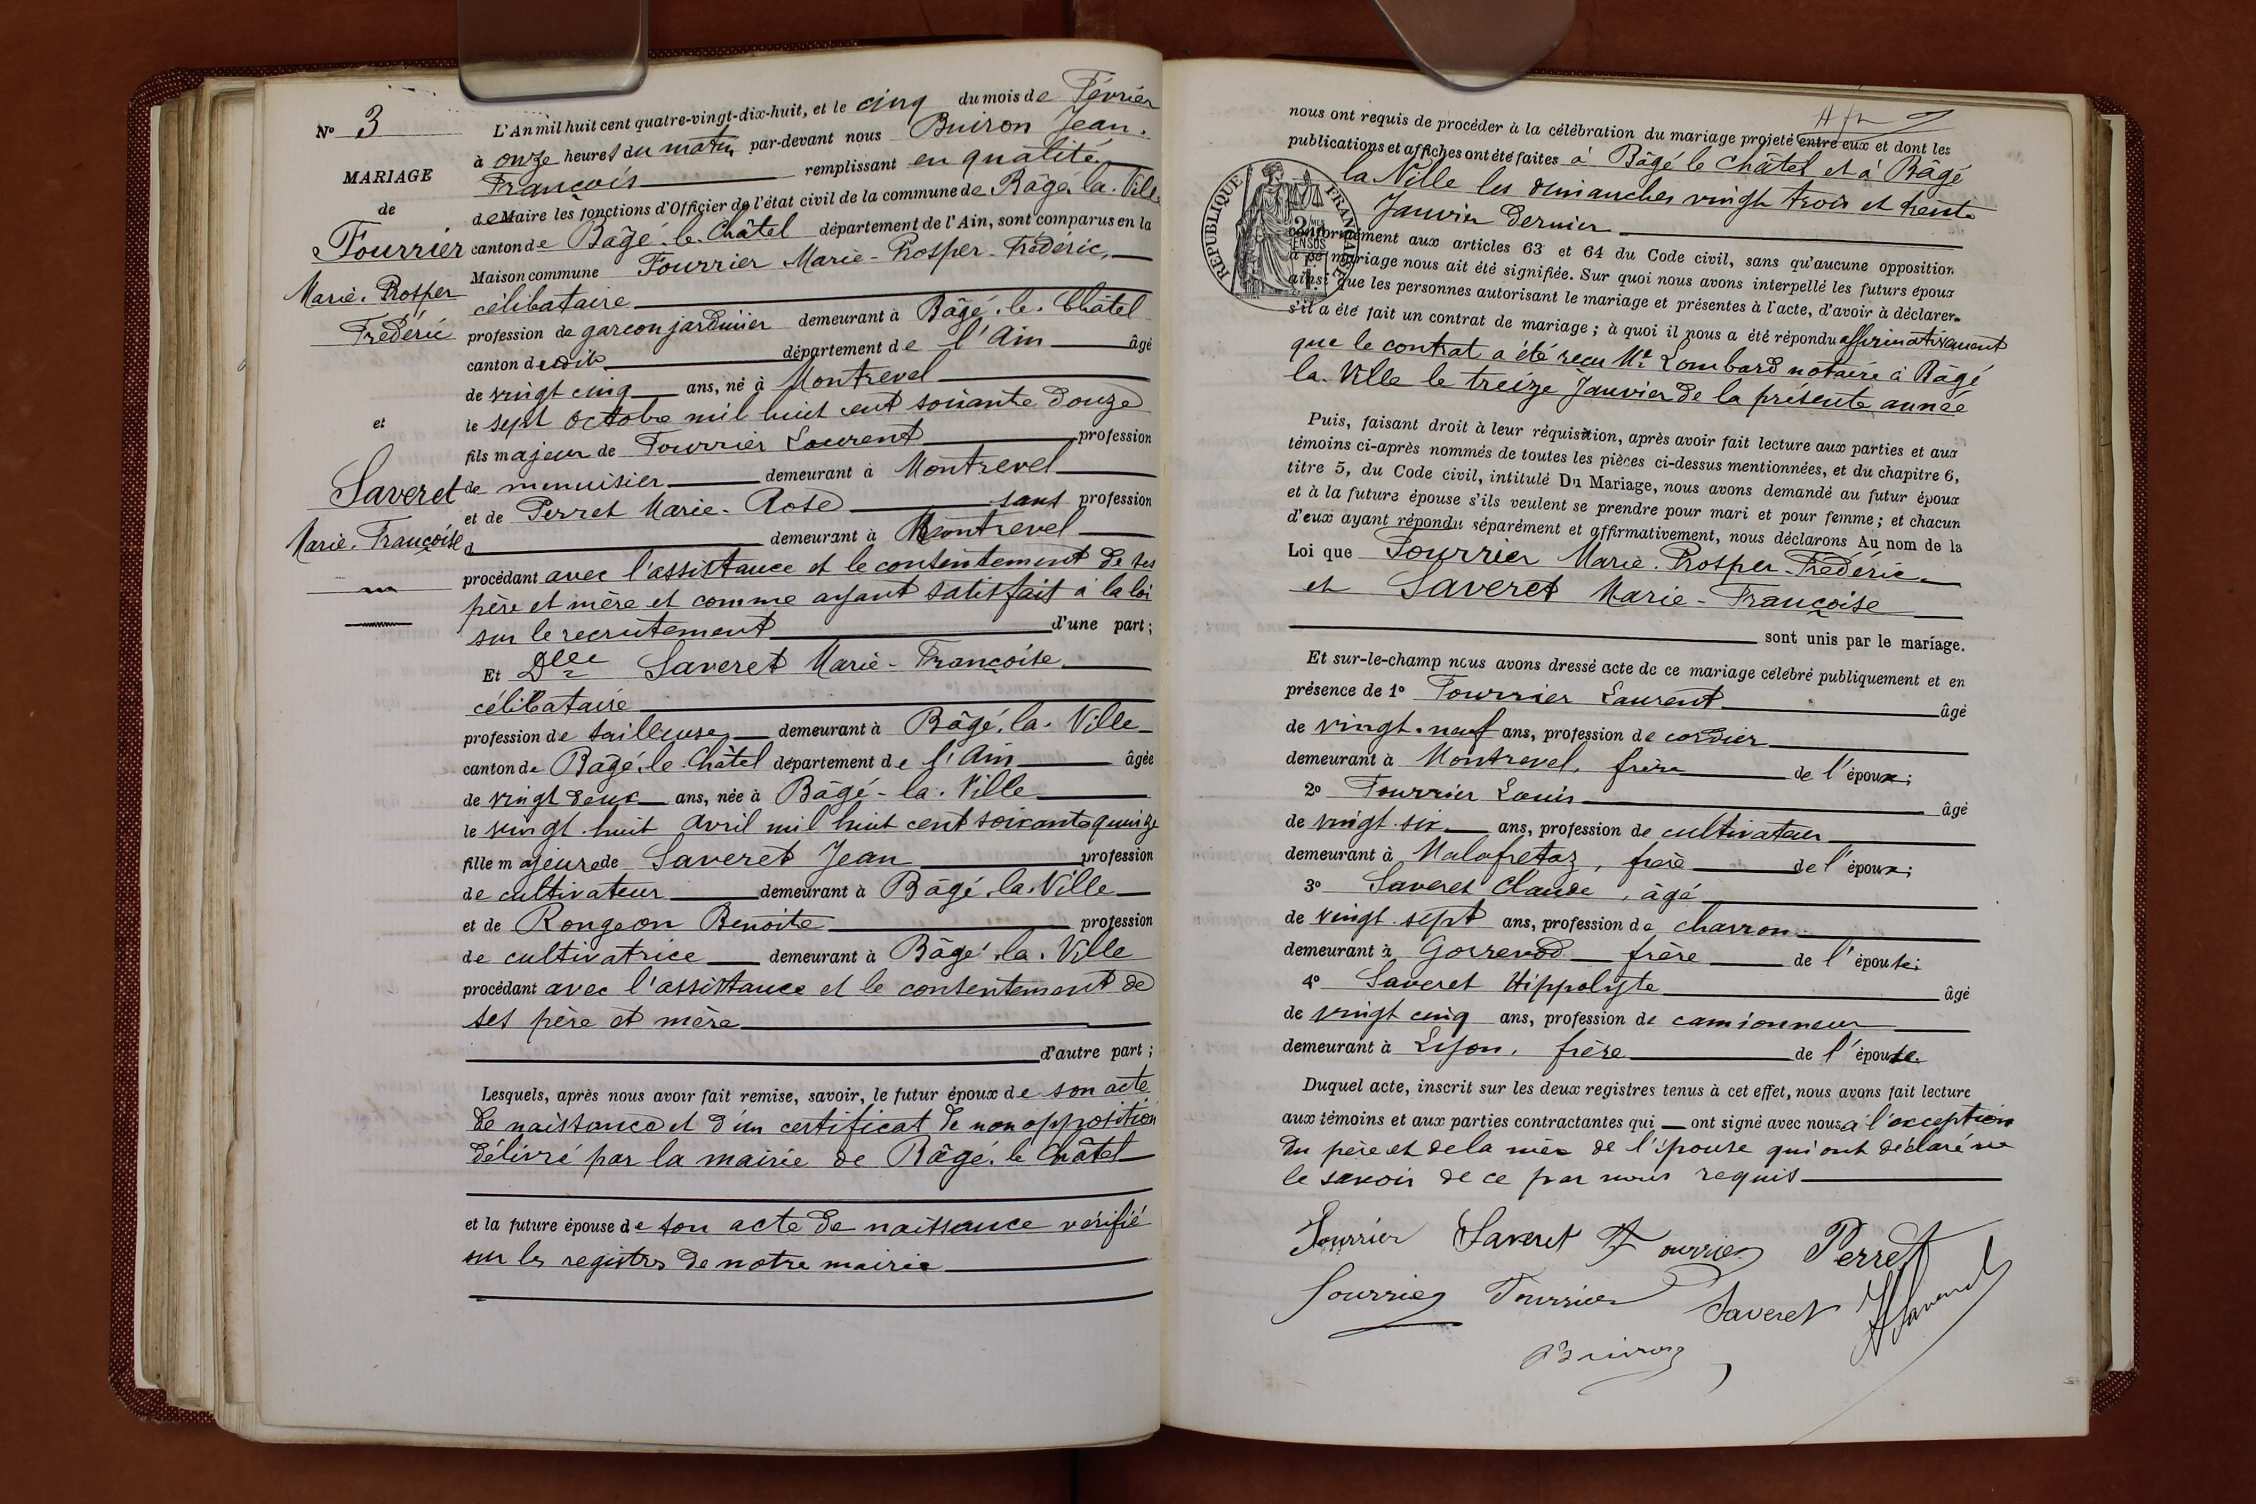 Nº 3
MARIAGE
de
Fourrier
Marie. Prosper
Frédéric
et
Saveret
Marie. Françoise
L'An mil huit cent quatre-vingt-dix-huit, et le cinq du mois de Février
à onze heures du matin par-devant nous Buiron Jean.
François remplissant en qualité
de Maire les fonctions d'Officier de l'état civil de la commune de Bâgé. la. Ville
canton de Bâgé. le. Châtel département de l'Ain, sont comparus en la
Maison commune Fourrier Marie-Prosper-Frédéric,
célibataire
profession de garçon jardinier demeurant à Bâgé. le. Châtel
canton de dit département de l'Ain âgé
de vingt cinq ans, né à Montrevel
le sept Octobre mil huit cent soixante douze
fils majeur de Fourrier Laurent profession
de menuisier demeurant à Montrevel
et de Perret Marie-Rose sans profession
d demeurant à Montrevel
procédant avec l'assistance et le consentement de ses
père et mère et comme ayant satisfait à la loi
sur le recrutement d'une part;
Et Dlle Saveret Marie-Françoise
célibataire
profession de tailleuse demeurant à Bâgé. la. Ville
canton de Bâgé. le. Châtel département de l'Ain âgée
de vingt deux ans, née à Bâgé-la. Ville
le vingt-huit avril mil huit cent soixante quinze
fille majeure de Saveret Jean profession
de cultivateur demeurant à Bâgé. la. Ville
et de Rongeon Benoite profession
de cultivatrice demeurant à Bâgé. la. Ville
procédant avec l'assistance et le consentement de
ses père et mère
d'autre part;
Lesquels, après nous avoir fait remise, savoir, le futur époux de son acte
de naissance et d'un certificat de non opposition
délivré par la mairie de Bâgé. le Châtel
et la future épouse de son acte de naissance vérifié
sur les registres de notre mairie
nous ont requis de procéder à la célébration du mariage projeté entre eux et dont les
publications et affiches ont été faites à Bâgé le Châtel et à Bâgé
la Ville les dimanches vingt trois et trente
Janvier dernier
RÉPUBLIQUE FRANÇAISE
conformément aux articles 63 et 64 du Code civil, sans qu'aucune opposition
à ce mariage nous ait été signifiée. Sur quoi nous avons interpellé les futurs époux
ainsi que les personnes autorisant le mariage et présentes à l'acte, d'avoir à déclarer
s'il a été fait un contrat de mariage; à quoi il nous a été répondu affirmativement
que le contrat a été reçu Me Lombard notaire à Bâgé
la. Ville le treize Janvier de la présente année
Puis, faisant droit à leur réquisition, après avoir fait lecture aux parties et aux
témoins ci-après nommés de toutes les pièces ci-dessus mentionnées, et du chapitre 6,
titre 5, du Code civil, intitulé Du Mariage, nous avons demandé au futur époux
et à la future épouse s'ils veulent se prendre pour mari et pour femme; et chacun
d'eux ayant répondu séparément et affirmativement, nous déclarons Au nom de la
Loi que Fourrier Marie. Prosper-Frédéric
et Saveret Marie-Françoise
sont unis par le mariage.
Et sur-le-champ nous avons dressé acte de ce mariage célébré publiquement et en
présence de 1º Fourrier Laurent âgé
de vingt-neuf ans, profession de cordier
demeurant à Montrevel, frère de l'époux;
2º Fourrier Louis âgé
de vingt-six ans, profession de cultivateur
demeurant à Malafretaz, frère de l'époux;
3º Saveret Claude, âgé
de vingt-sept ans, profession de charron
demeurant à Gorrevod frère de l'épouse;
4º Saveret Hippolyte âgé
de vingt cinq ans, profession de camionneur
demeurant à Lyon, frère de l'épouse.
Duquel acte, inscrit sur les deux registres tenus à cet effet, nous avons fait lecture
aux témoins et aux parties contractantes qui ont signé avec nous à l'exception
du père et de la mère de l'épouse qui ont déclaré ne
le savoir de ce par nous requis
Fourrier Saveret Fourrier Perret
Fourrier Fourrier Saveret H Saveret
Buiron